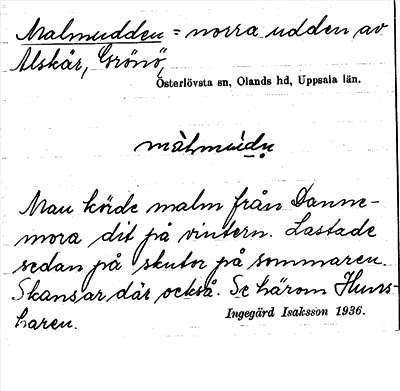 Malmudden = norra udden av
Alskär, Grönö,
Österlövsta sn, Olands hd, Uppsala län.
màlmùdn̥
Man körde malm från Danne-
mora dit på vintern. Lastade
sedan på skutor på sommaren.
Skansar där också. Se härom
haren.
Ingegärd Isaksson 1936.